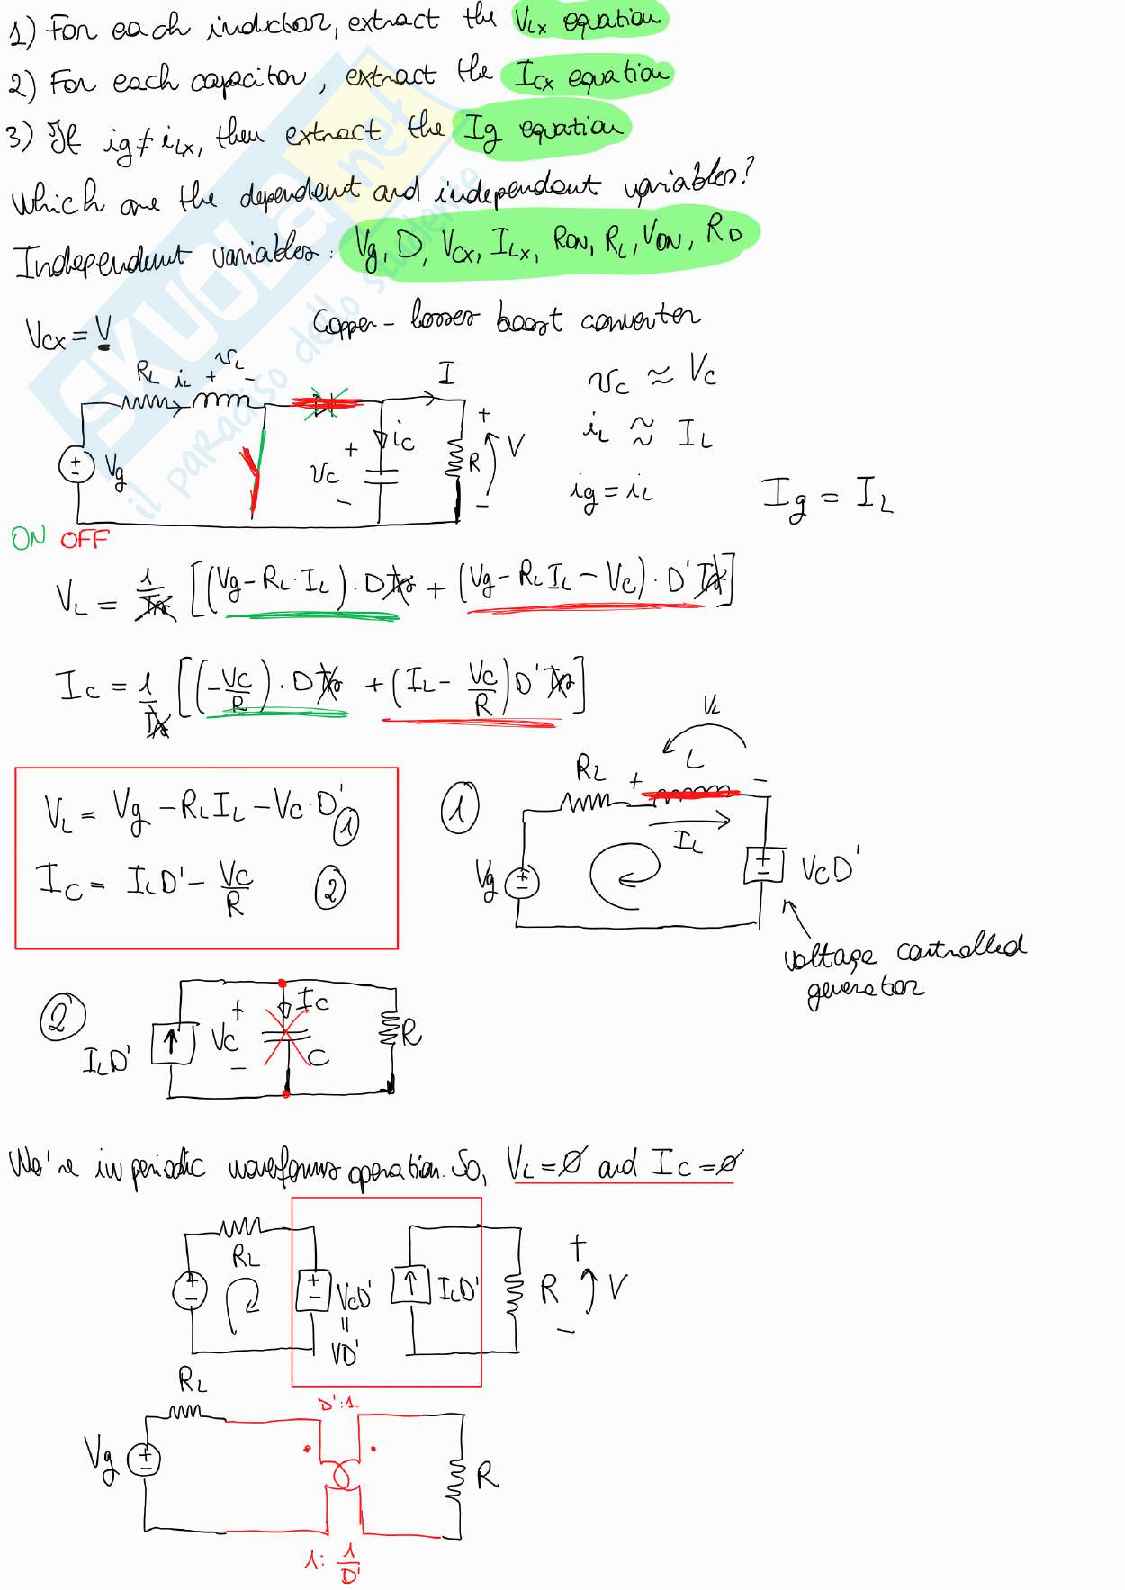 1) For each inductor, extract the VLx equation
2) For each capacitor, extract the ICx equation
3) If ig ≠ iLx, then extract the Ig equation
Which are the dependent and independent variables?
Independent variables: Vg, D, VCx, ILx, RON, RL, VON, RD
SKUOLA.net
il paradiso dello studente
VCx = V
Copper-losses boost converter
RL iL + vL -
I
vC ≈ VC
iL ≈ IL
ig = iL
Ig = IL
+ - Vg
+ vC - iC
R + V -
ON OFF
VL = 1/Ts [(Vg - RL·IL)·DTs + (Vg - RLIL - VC)·D'Ts]
IC = 1/Ts [(-VC/R)·DTs + (IL - VC/R)D'Ts]
VL = Vg - RLIL - VC·D' 1
IC = ILD' - VC/R 2
1
VL
RL + L -
IL
Vg + -
+ - VCD'
voltage controlled
generator
2
ILD' + VC - IC C R
We're in periodic waveforms operation. So, VL=0 and IC=0
RL
+ - VCD' = VD'
ILD'
R + V -
RL
D':1
Vg + -
R
1: 1/D'